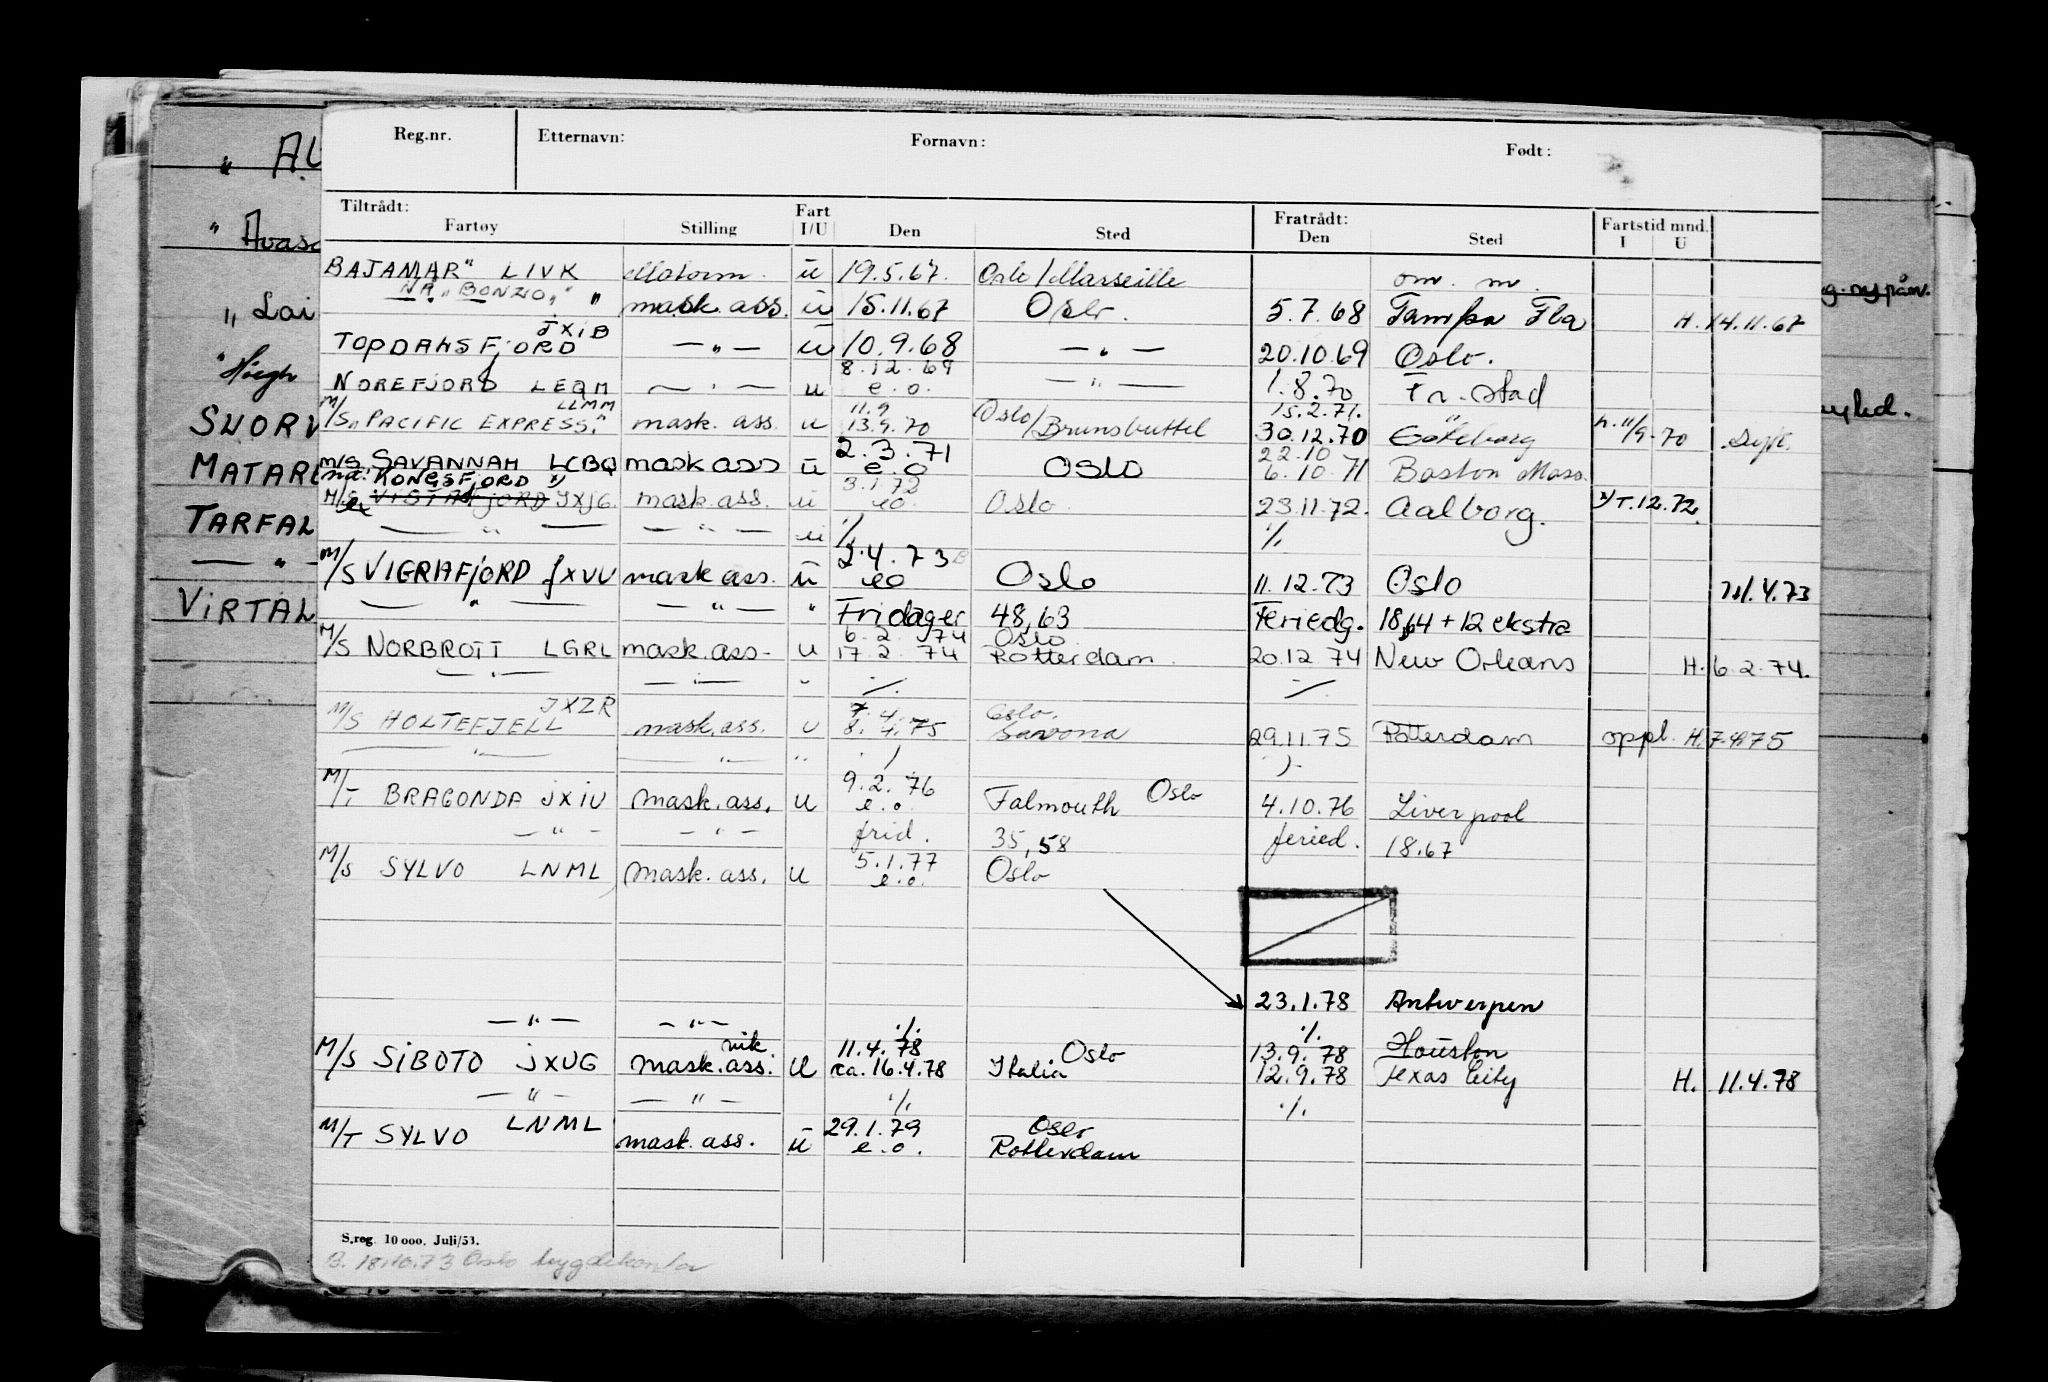 Reg.nr. Etternavn: Fornavn: Født:
Tiltrådt: Fartøy Stilling Fart I/U Den Sted Fratrådt: Den Sted Fartstid mnd. I U
BAJAMAR" LIVK Motorm. u 19.5.67. Oslo/Marseille om. m.
NÅ "BONZO" " mask ass. u 15.11.67 Oslo. 5.7.68 Tampa Fla H. 14.11.67
JXIB
TOPDALSFJORD —"— u 10.9.68 —"— 20.10.69 Oslo.
8.12.69
NOREFJORD LEQM —"— u e.o. —"— 1.8.70 Fr. stad
LLMM 11.9 15.2.71. "
M/S "PACIFIC EXPRESS" mask. ass. u 13.9.70 Oslo/Brunsbuttel 30.12.70 Göteborg h. 11/9-70
2.3.71 22.10
M/S. SAVANNAH LCBQ mask ass u e.o Oslo 6.10.71 Boston Mass.
nå: KONGSFJORD x) 3.1.72
M/S VISTAFJORD JXJG. mask. ass. u eo. Oslo 23.11.72. Aalborg. x) T.12.72.
—"— —"— u % %
2.4.73
M/S VIGRAFJORD JXVV mask ass. u eo Oslo 11.12.73 Oslo 4.73
—"— —"— " Fridager 48,63 Feriedg. 18,64 + 12 ekstra
6.2.74 Oslo
M/S NORBROTT LGRL mask.ass- u 17.2.74 Rotterdam. 20.12 74 New Orleans H. 6.2.74.
—"— —"— " % %
JXZR 7.4. Oslo.
M/S HOLTEFJELL mask.ass. u 8.4.75 Savona 29.11.75 Rotterdam oppl. H. 7.4.75
—"— —"— " % %
9.2.76 Oslo
M/T BRAGONDA JXIU Mask.ass. u e.o. Falmouth 4.10.76 Liverpool
—"— —"— frid. 35,58 feried. 18.67
5.1.77
M/S SYLVO LNML Mask.ass. u e.o. Oslo
23.1.78 Antwerpen
—"— —"— % %
vik. 11.4.78 Oslo 13.9.78 Houston
M/S SIBOTO JXUG Mask.ass. U ca. 16.4.78 Italia 12.9.78 Texas City H. 11.4.78
—"— —"— % %
LNML 29.1.79 Oslo
M/T SYLVO mask.ass. u e.o. Rotterdam
S.reg. 10 000. Juli/53.
B. 18.10.73 Oslo
" AU
" Avas
" Lai
" Høegh
SUORV
MATARE
TARFAL
— " —
VIRTAL